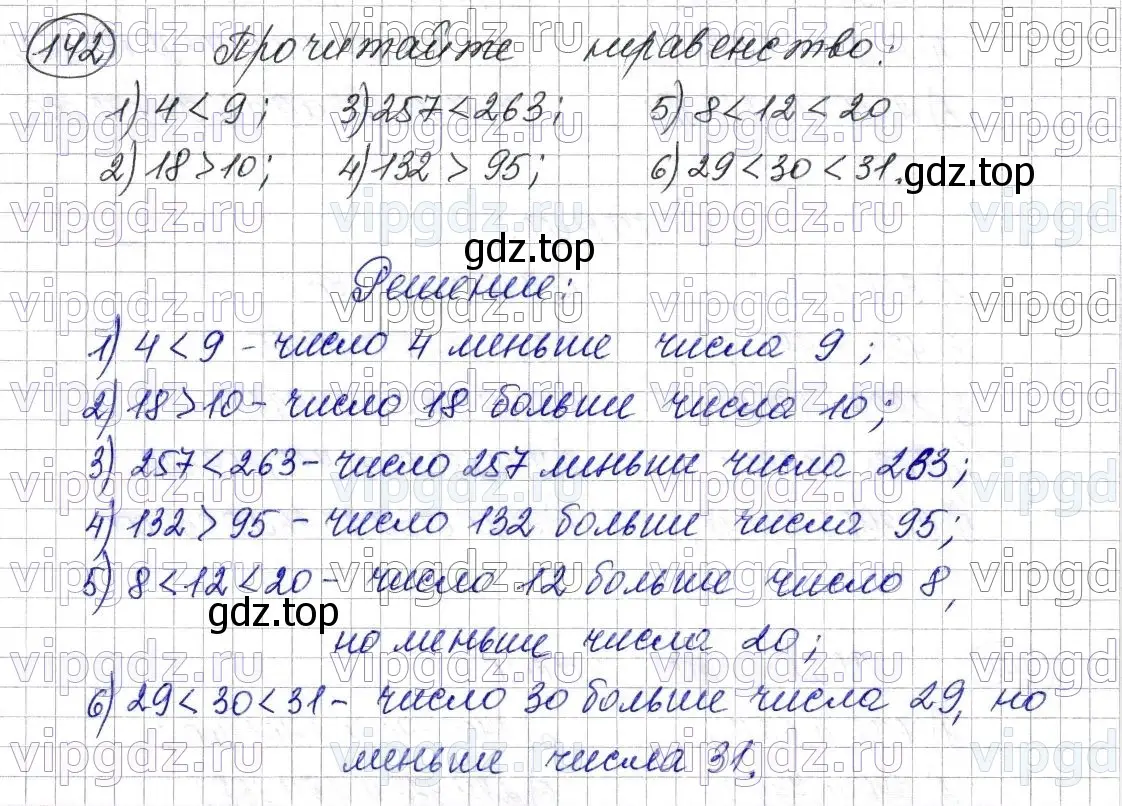 142 Прочитайте неравенство:
1) 4 < 9; 3) 257 < 263; 5) 8 < 12 < 20
2) 18 > 10; 4) 132 > 95; 6) 29 < 30 < 31.
gdz.top
gdz.top
Решение:
1) 4 < 9 - число 4 меньше числа 9;
2) 18 > 10 - число 18 больше числа 10;
3) 257 < 263 - число 257 меньше числа 263;
4) 132 > 95 - число 132 больше числа 95;
5) 8 < 12 < 20 - число 12 больше число 8,
gdz.top
но меньше числа 20;
6) 29 < 30 < 31 - число 30 больше числа 29, но
меньше числа 31.
vipgdz.ru